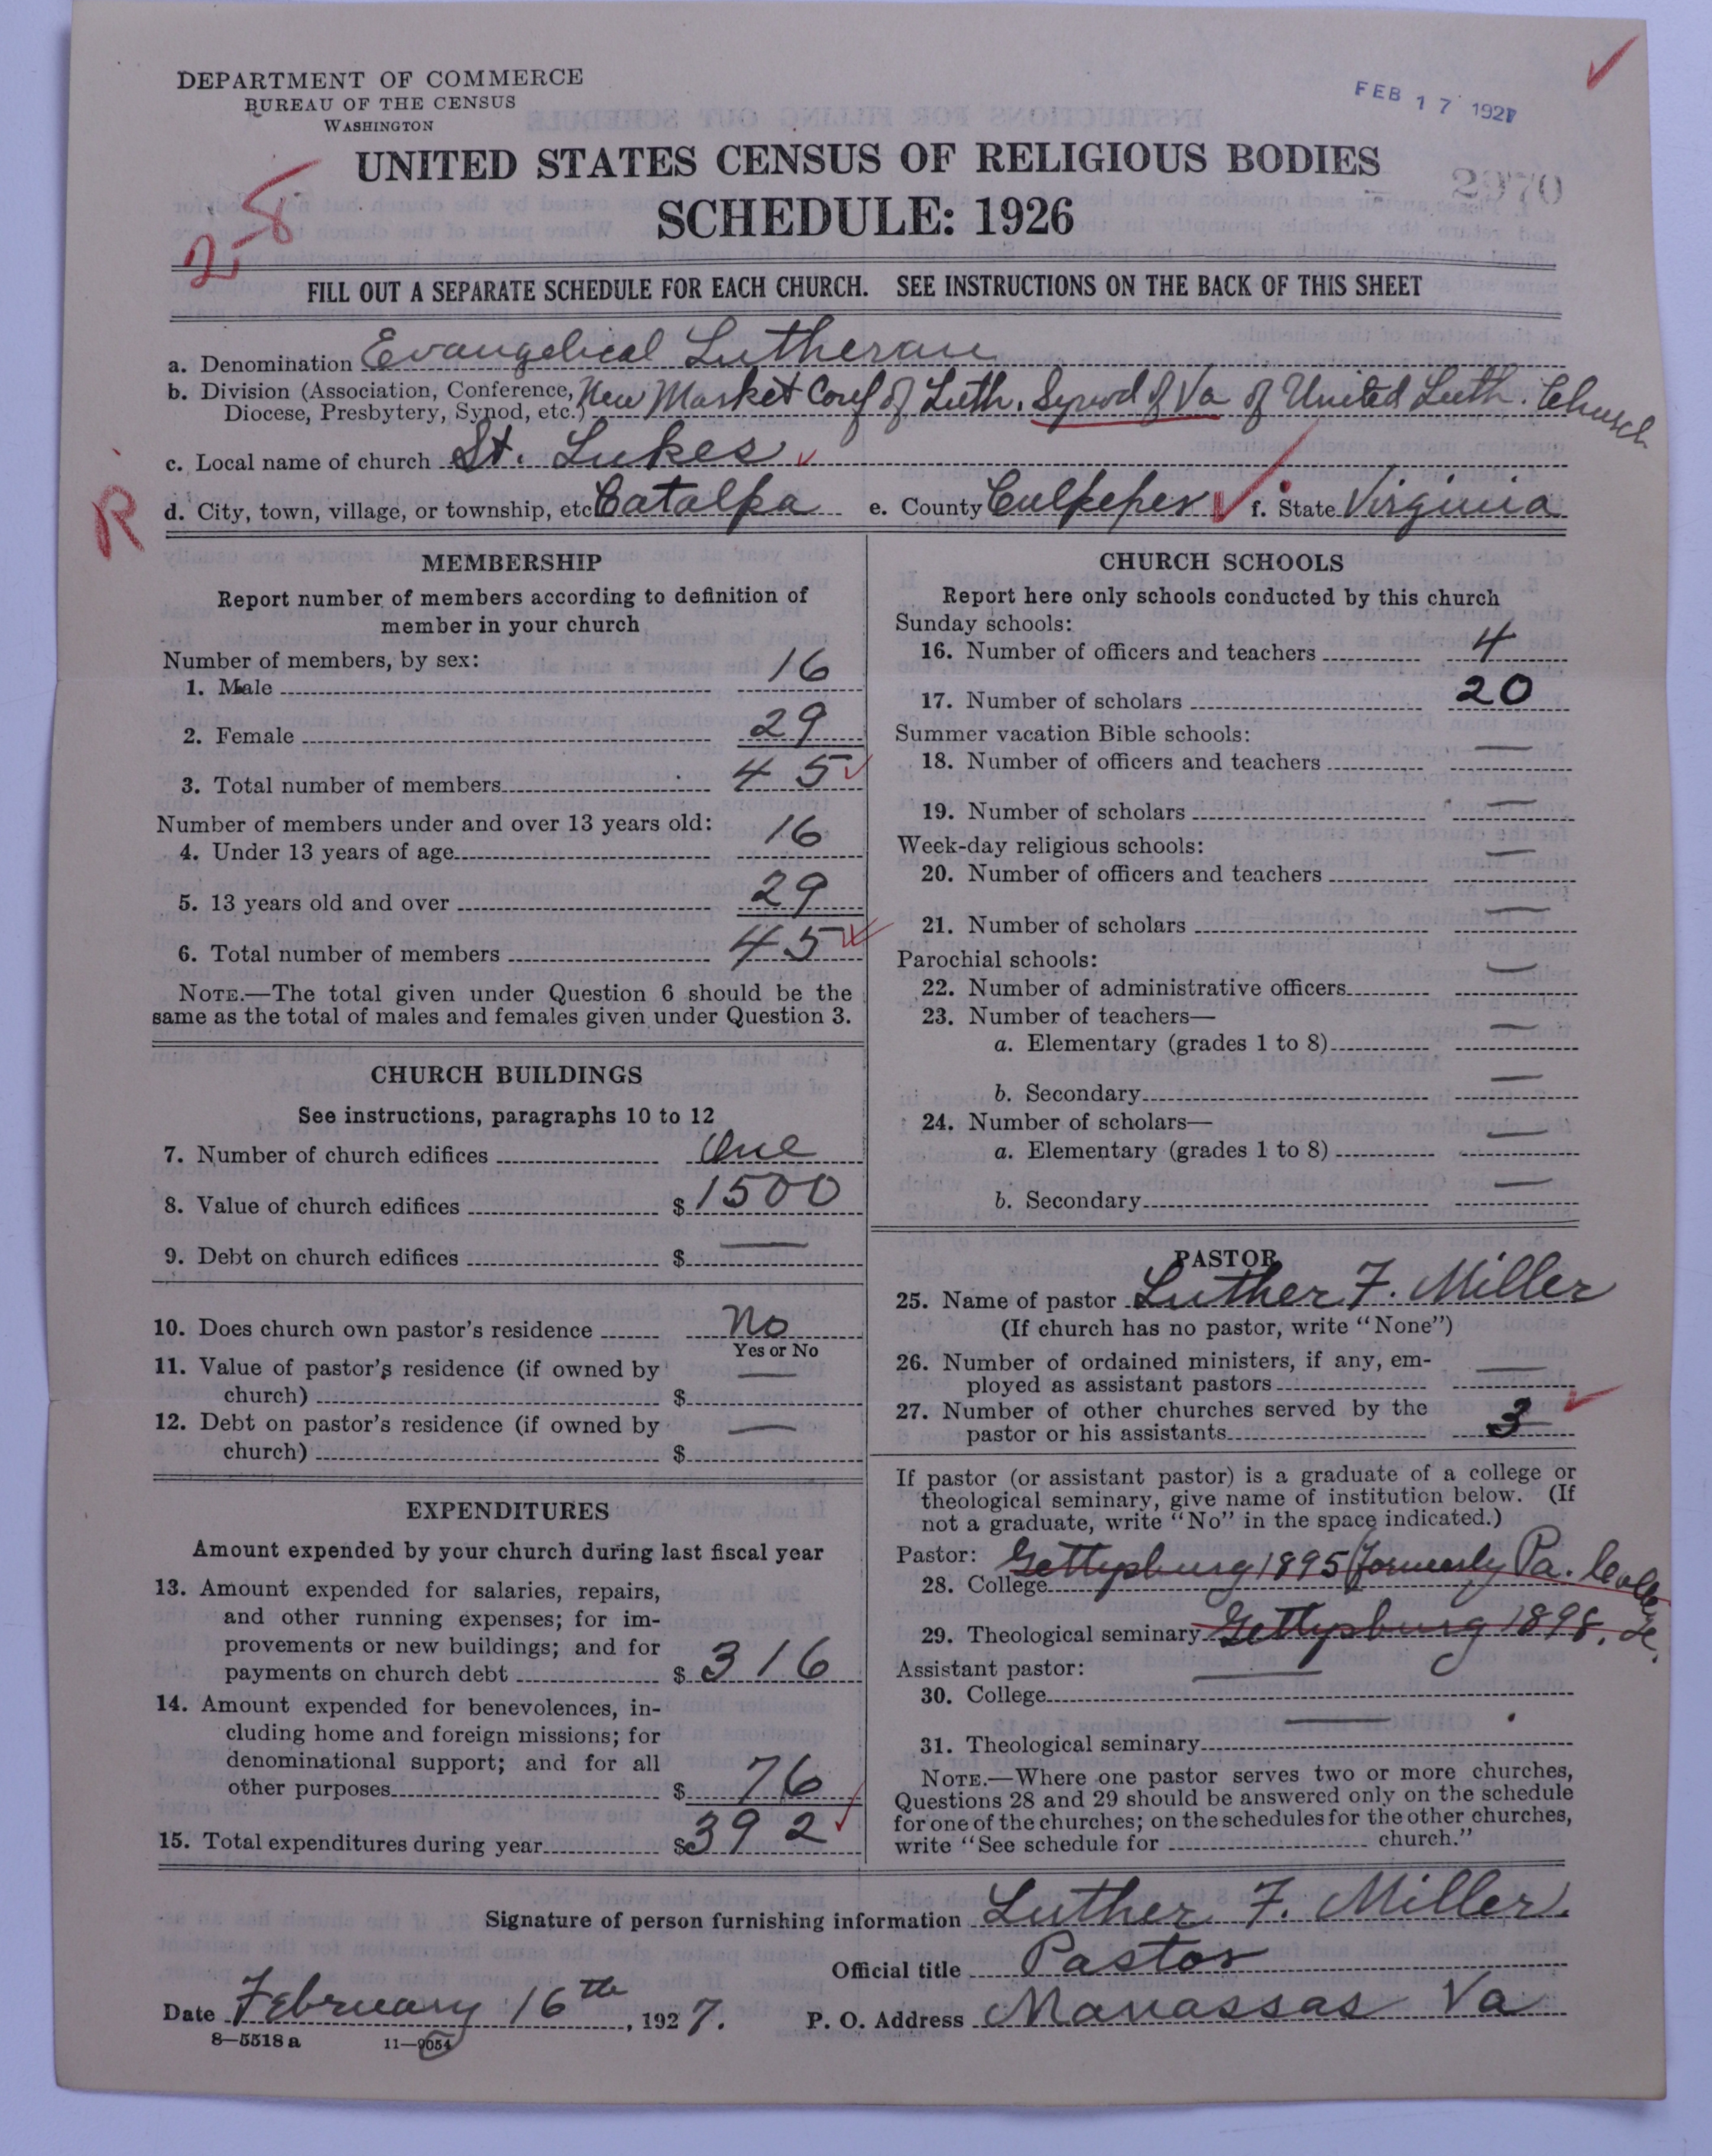 DEPARTMENT OF COMMERCE
BUREAU OF THE CENSUS
WASHINGTON
FEB 17 1927
UNITED STATES CENSUS OF RELIGIOUS BODIES
2970
SCHEDULE: 1926
2-8
FILL OUT A SEPARATE SCHEDULE FOR EACH CHURCH. SEE INSTRUCTIONS ON THE BACK OF THIS SHEET
a. Denomination Evangelical Lutheran
b. Division (Association, Conference, Diocese, Presbytery, Synod, etc.) New Market Conf of Luth. Synod of Va of United Luth. Church
c. Local name of church St. Lukes
R
d. City, town, village, or township, etc Catalpa e. County Culpeper f. State Virginia
MEMBERSHIP
Report number of members according to definition of
member in your church
Number of members, by sex:
1. Male 16
2. Female 29
3. Total number of members 45
Number of members under and over 13 years old:
4. Under 13 years of age 16
5. 13 years old and over 29
6. Total number of members 45
NOTE.—The total given under Question 6 should be the
same as the total of males and females given under Question 3.
CHURCH BUILDINGS
See instructions, paragraphs 10 to 12
7. Number of church edifices One
8. Value of church edifices $ 1500
9. Debt on church edifices $ —
10. Does church own pastor's residence No
Yes or No
11. Value of pastor's residence (if owned by
church) $ —
12. Debt on pastor's residence (if owned by
church) $ —
EXPENDITURES
Amount expended by your church during last fiscal year
13. Amount expended for salaries, repairs,
and other running expenses; for im-
provements or new buildings; and for
payments on church debt $ 316
14. Amount expended for benevolences, in-
cluding home and foreign missions; for
denominational support; and for all
other purposes $ 76
15. Total expenditures during year $ 392
CHURCH SCHOOLS
Report here only schools conducted by this church
Sunday schools:
16. Number of officers and teachers 4
17. Number of scholars 20
Summer vacation Bible schools:
18. Number of officers and teachers —
19. Number of scholars —
Week-day religious schools:
20. Number of officers and teachers —
21. Number of scholars —
Parochial schools:
22. Number of administrative officers —
23. Number of teachers—
a. Elementary (grades 1 to 8) —
b. Secondary —
24. Number of scholars—
a. Elementary (grades 1 to 8) —
b. Secondary —
PASTOR
25. Name of pastor Luther F. Miller
(If church has no pastor, write "None")
26. Number of ordained ministers, if any, em-
ployed as assistant pastors —
27. Number of other churches served by the
pastor or his assistants 3
If pastor (or assistant pastor) is a graduate of a college or
theological seminary, give name of institution below. (If
not a graduate, write "No" in the space indicated.)
Pastor:
28. College Gettysburg 1895 (formerly Pa. College
29. Theological seminary Gettysburg 1898.
Assistant pastor:
30. College —
31. Theological seminary —
NOTE.—Where one pastor serves two or more churches,
Questions 28 and 29 should be answered only on the schedule
for one of the churches; on the schedules for the other churches,
write "See schedule for church."
Signature of person furnishing information Luther F. Miller.
Official title Pastor
Date February 16th, 1927. P. O. Address Manassas Va
8—5518 a 11—9054